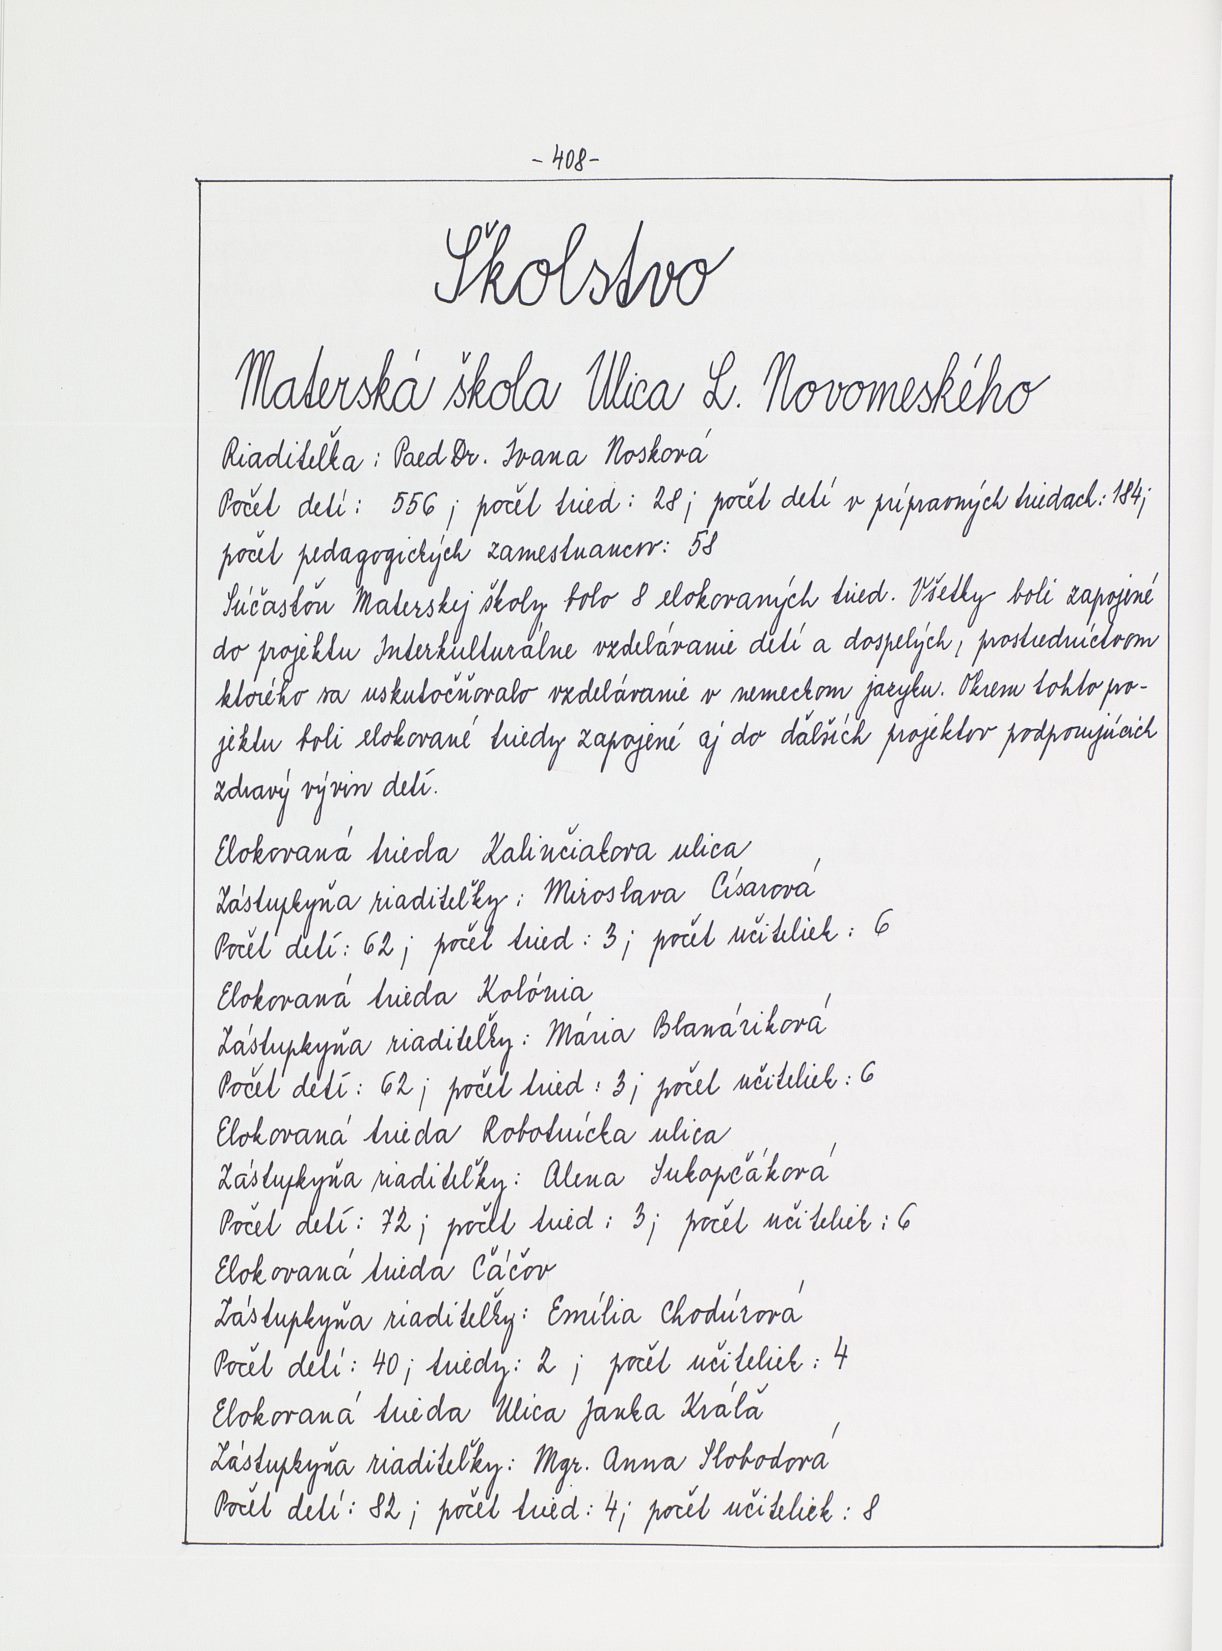 - 408 -
Školstvo
Materská škola Ulica L. Novomeského
Riaditeľka : PaedDr. Ivana Nosková
Počet detí : 556 ; počet tried : 28 ; počet detí v prípravných triedach : 184 ;
počet pedagogických zamestnancov : 58
Súčasťou Materskej školy bolo 8 elokovaných tried. Všetky boli zapojené
do projektu Interkulturálne vzdelávanie detí a dospelých, prostredníctvom
ktorého sa uskutočňovalo vzdelávanie v nemeckom jazyku. Okrem tohto po-
jektu boli elokované triedy zapojené aj do ďalších projektov podporujúcich
zdravý vývin detí.
Elokovaná trieda Kalinčiakova ulica
Zástupkyňa riaditeľky : Miroslava Císarová
Počet detí : 62 ; počet tried : 3 ; počet učiteliek : 6
Elokovaná trieda Kolónia
Zástupkyňa riaditeľky : Mária Blanáriková
Počet detí : 62 ; počet tried : 3 ; počet učiteliek : 6
Elokovaná trieda Robotnícka ulica
Zástupkyňa riaditeľky : Alena Sukopčáková
Počet detí : 72 ; počet tried : 3 ; počet učiteliek : 6
Elokovaná trieda Čáčov
Zástupkyňa riaditeľky : Emília Chodúrová
Počet detí : 40 ; triedy : 2 ; počet učiteliek : 4
Elokovaná trieda Ulica Janka Kráľa
Zástupkyňa riaditeľky : Mgr. Anna Slobodová
Počet detí : 82 ; počet tried : 4 ; počet učiteliek : 8